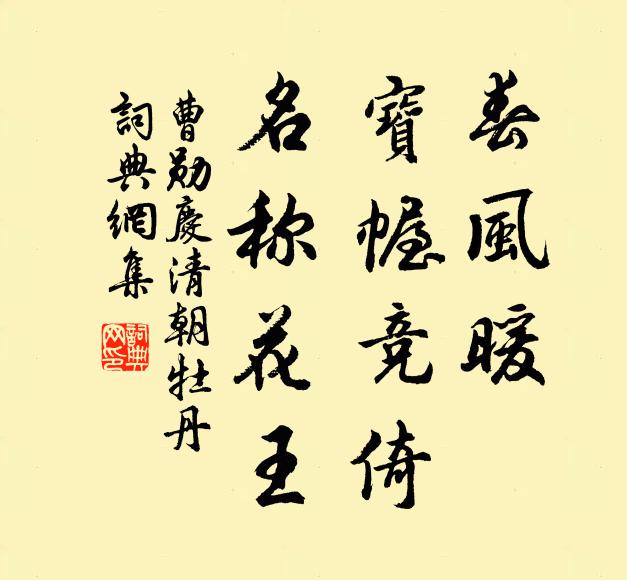 春風暖
寶幄竞倚
名称花王
曹勛慶清朝牡丹
詞典網集
詞典
网印